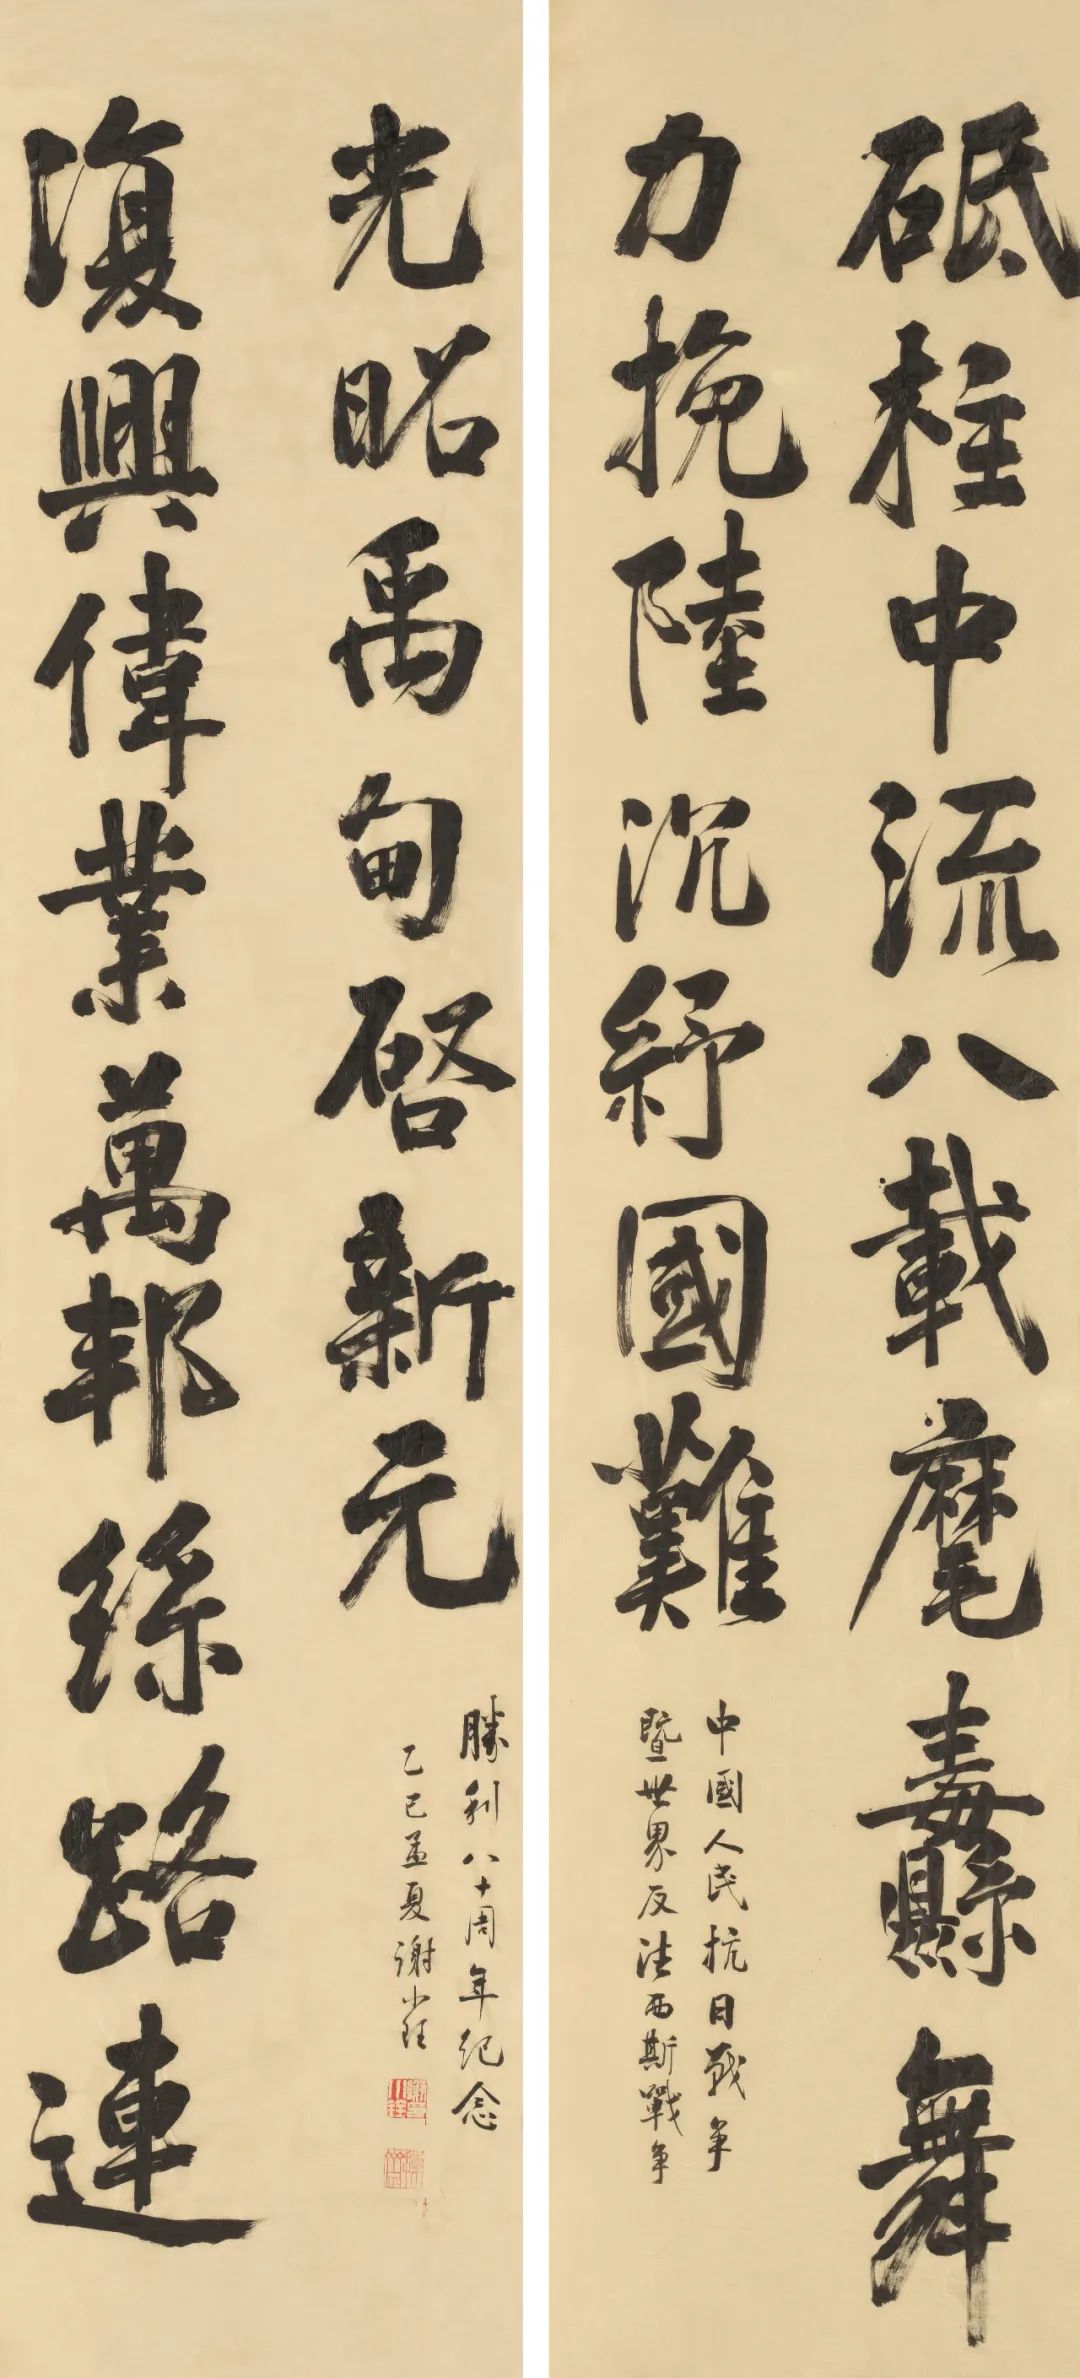 砥柱中流八載麾纛舞
力挽陸沉紓國難
中國人民抗日戰争
暨世界反法西斯戰争
復興偉業萬邦絲路連
光昭禹甸啓新元
勝利八十周年紀念
乙巳孟夏謝小銓